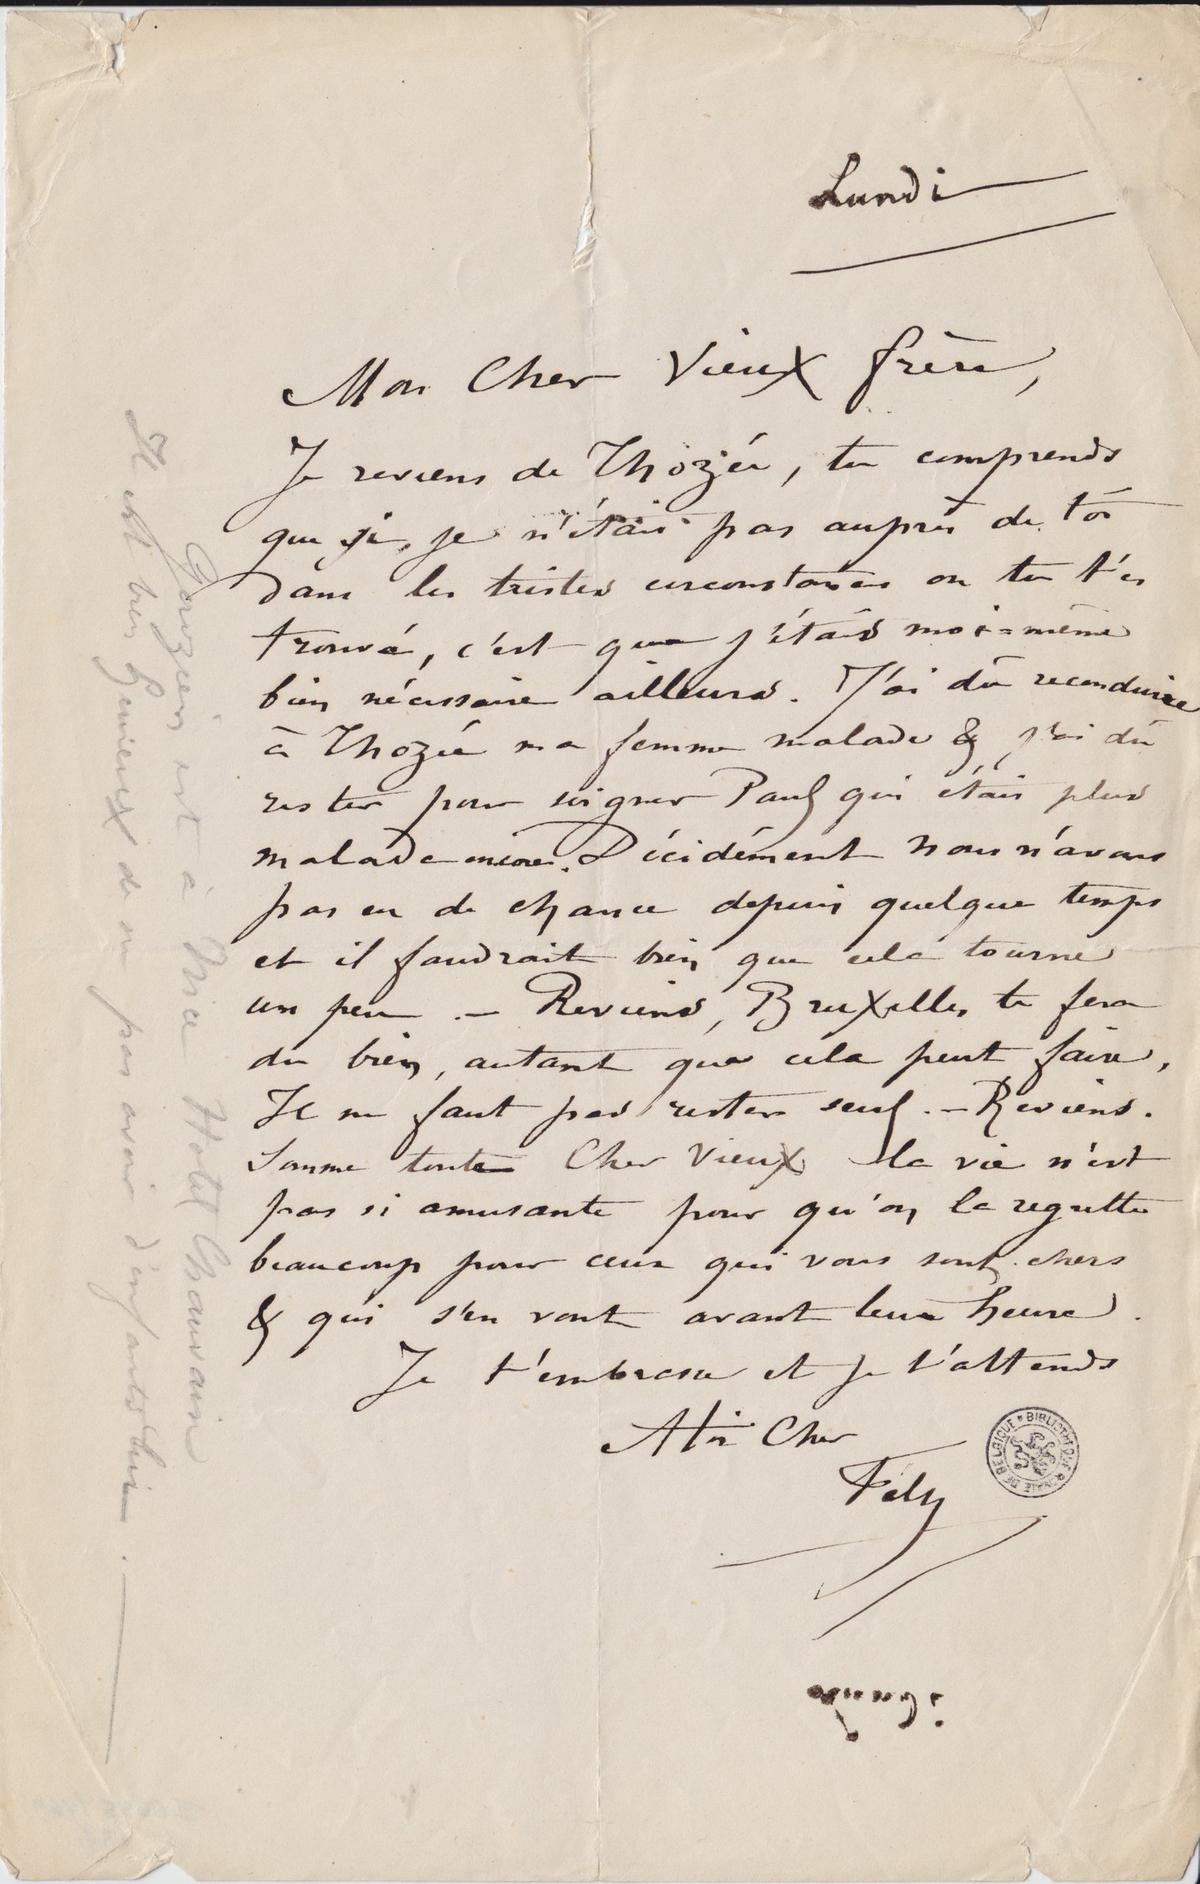 Lundi
Mon Cher Vieux frère,
Je reviens de Thozée, tu comprends
que si, je n'étais pas auprès de toi
dans les tristes circonstances où tu t'es
trouvé, c'est que j'étais moi-même
bien nécessaire ailleurs. J'ai dû reconduire
à Thozée ma femme malade & j'ai dû
rester pour soigner Paul qui était plus
malade encore. Décidément nous n'avons
pas eu de chance depuis quelque temps
et il faudrait bien que cela tourne
un peu. – Reviens, Bruxelles te fera
du bien, autant que cela peut faire,
Il ne faut pas rester seul. – Reviens.
Somme toute Cher Vieux la vie n'est
pas si amusante pour qu'on la regrette
beaucoup pour ceux qui vous sont chers
& qui s'en vont avant leur heure.
Je t'embrasse et je t'attends
A toi Cher
Fély
BIBLIOTHÈQUE ROYALE DE BELGIQUE
Gouzien est à Nice Hotel Chauvain
Il est très heureux de ne pas avoir d'enfants lui.